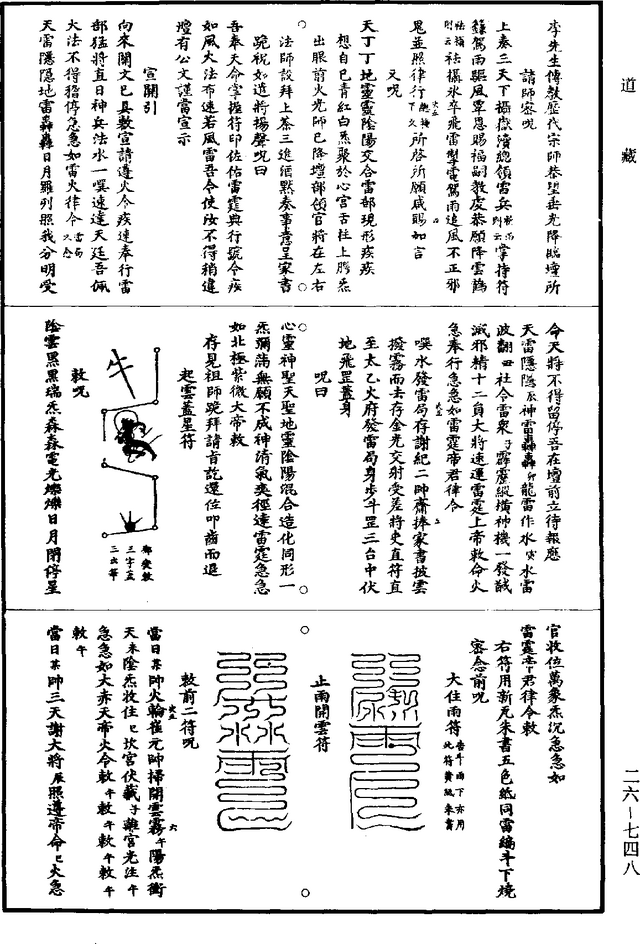 道藏
李先生傳教歷代宗師恭望垂光降臨壇所
請師密呪
上奏三天下攝嶽瀆總領雷兵掌持符
籙駕雨驅風覃恩賜福副教虔恭願降雲鶴
祛攝氷卒飛雷掣電駕雨追風不正邪
鬼並照律行所啓所願咸賜如言
又呪
天丁丁地靈靈陰陽交合雷部現形疾疾
想自己青紅白炁聚於心宮舌柱上腭炁
出眼前火光師已降壇部領官將在左右
法師設拜上茶三進緬默奏事意呈家書
跪祝如道將揚聲呪曰
吾奉天命掌握符印佐佑雷霆典行號令疾
如風火法布速若風雷吾令使汝不得稍違
壇有公文謹當宣示
宣關引
向來關文已具敷宣請遵火令疾速奉行雷
部猛將直日神兵法水一噀速達天廷吾佩
大法不得稽停急急如雷火律令
天雷隱隱地雷轟轟日月羅列照我分明受
命天將不得留停吾在壇前立待報應
天雷隱隱辰神雷轟轟卯龍雷作水水雷
波翻四社令雷衆子霹靂縱橫神機一發馘
滅邪精十二員大將速運雷霆上帝敕命火
急奉行急急如雷霆帝君律令
噀水發雷局存謝紀二帥齋捧家書披雲
撥霧而去存金光交射受差將吏直符直
至太乙火府發雷局身步斗罡三台中伏
地飛罡蓋身
呪曰
心靈神聖天聖地靈陰陽混合造化同形一
炁彌滿無願不成神清氣爽徑達雷霆急急
如北極紫微大帝敕
存見祖師跪拜請旨訖還位叩齒而退
起雲蓋星符
敕呪
陰雲黑黑瑞炁森森電光爍爍日月閉停星
官收位萬象炁沉急急如
雷霆帝君律令敕
右符用新瓦朱書五色紙同雷編斗下燒
密念前呪
大住雨符
止雨開雲符
敕前二符呪
當日某帥火輪崔元帥掃開雲霧午陽炁衝
天未陰炁收住巳坎宮伏藏子離宮光注午
急急如大赤天帝火令敕午敕午敕午敕午
敕午
當日某帥三天謝大將辰照遵帝命巳火急
二六—七四八